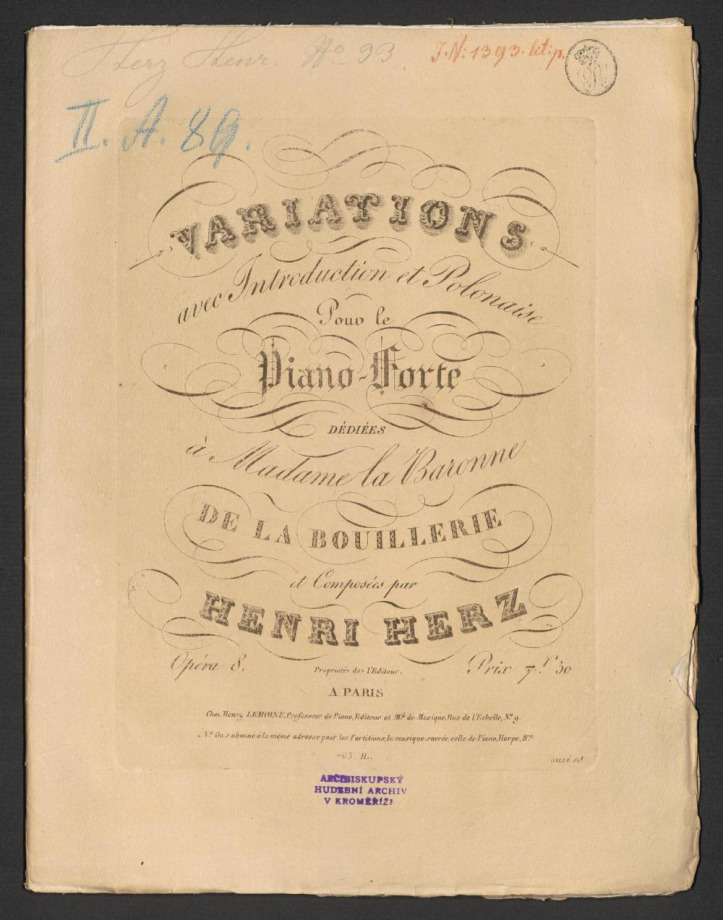 Herz Henr. No 33.
J.N: 1393.
II. A. 89.
VARIATIONS
avec Introduction et Polonaise
Pour le
Piano-Forte
DÉDIÉES
à Madame la Baronne
DE LA BOUILLERIE
et Composées par
HENRI HERZ
Opéra 8.
Propriétés de l'Editeur.
Prix 7.f 50
A PARIS
Chez Henry LEMOINE, Professeur de Piano, Editeur et Md. de Musique, Rue de l'Echelle, No. 9.
On s'abonne à la même adresse pour les Partitions, la musique sacrée, celle de Piano, Harpe, &a.
ARCIBISKUPSKÝ
HUDEBNÍ ARCHIV
V KROMĚŘÍŽI